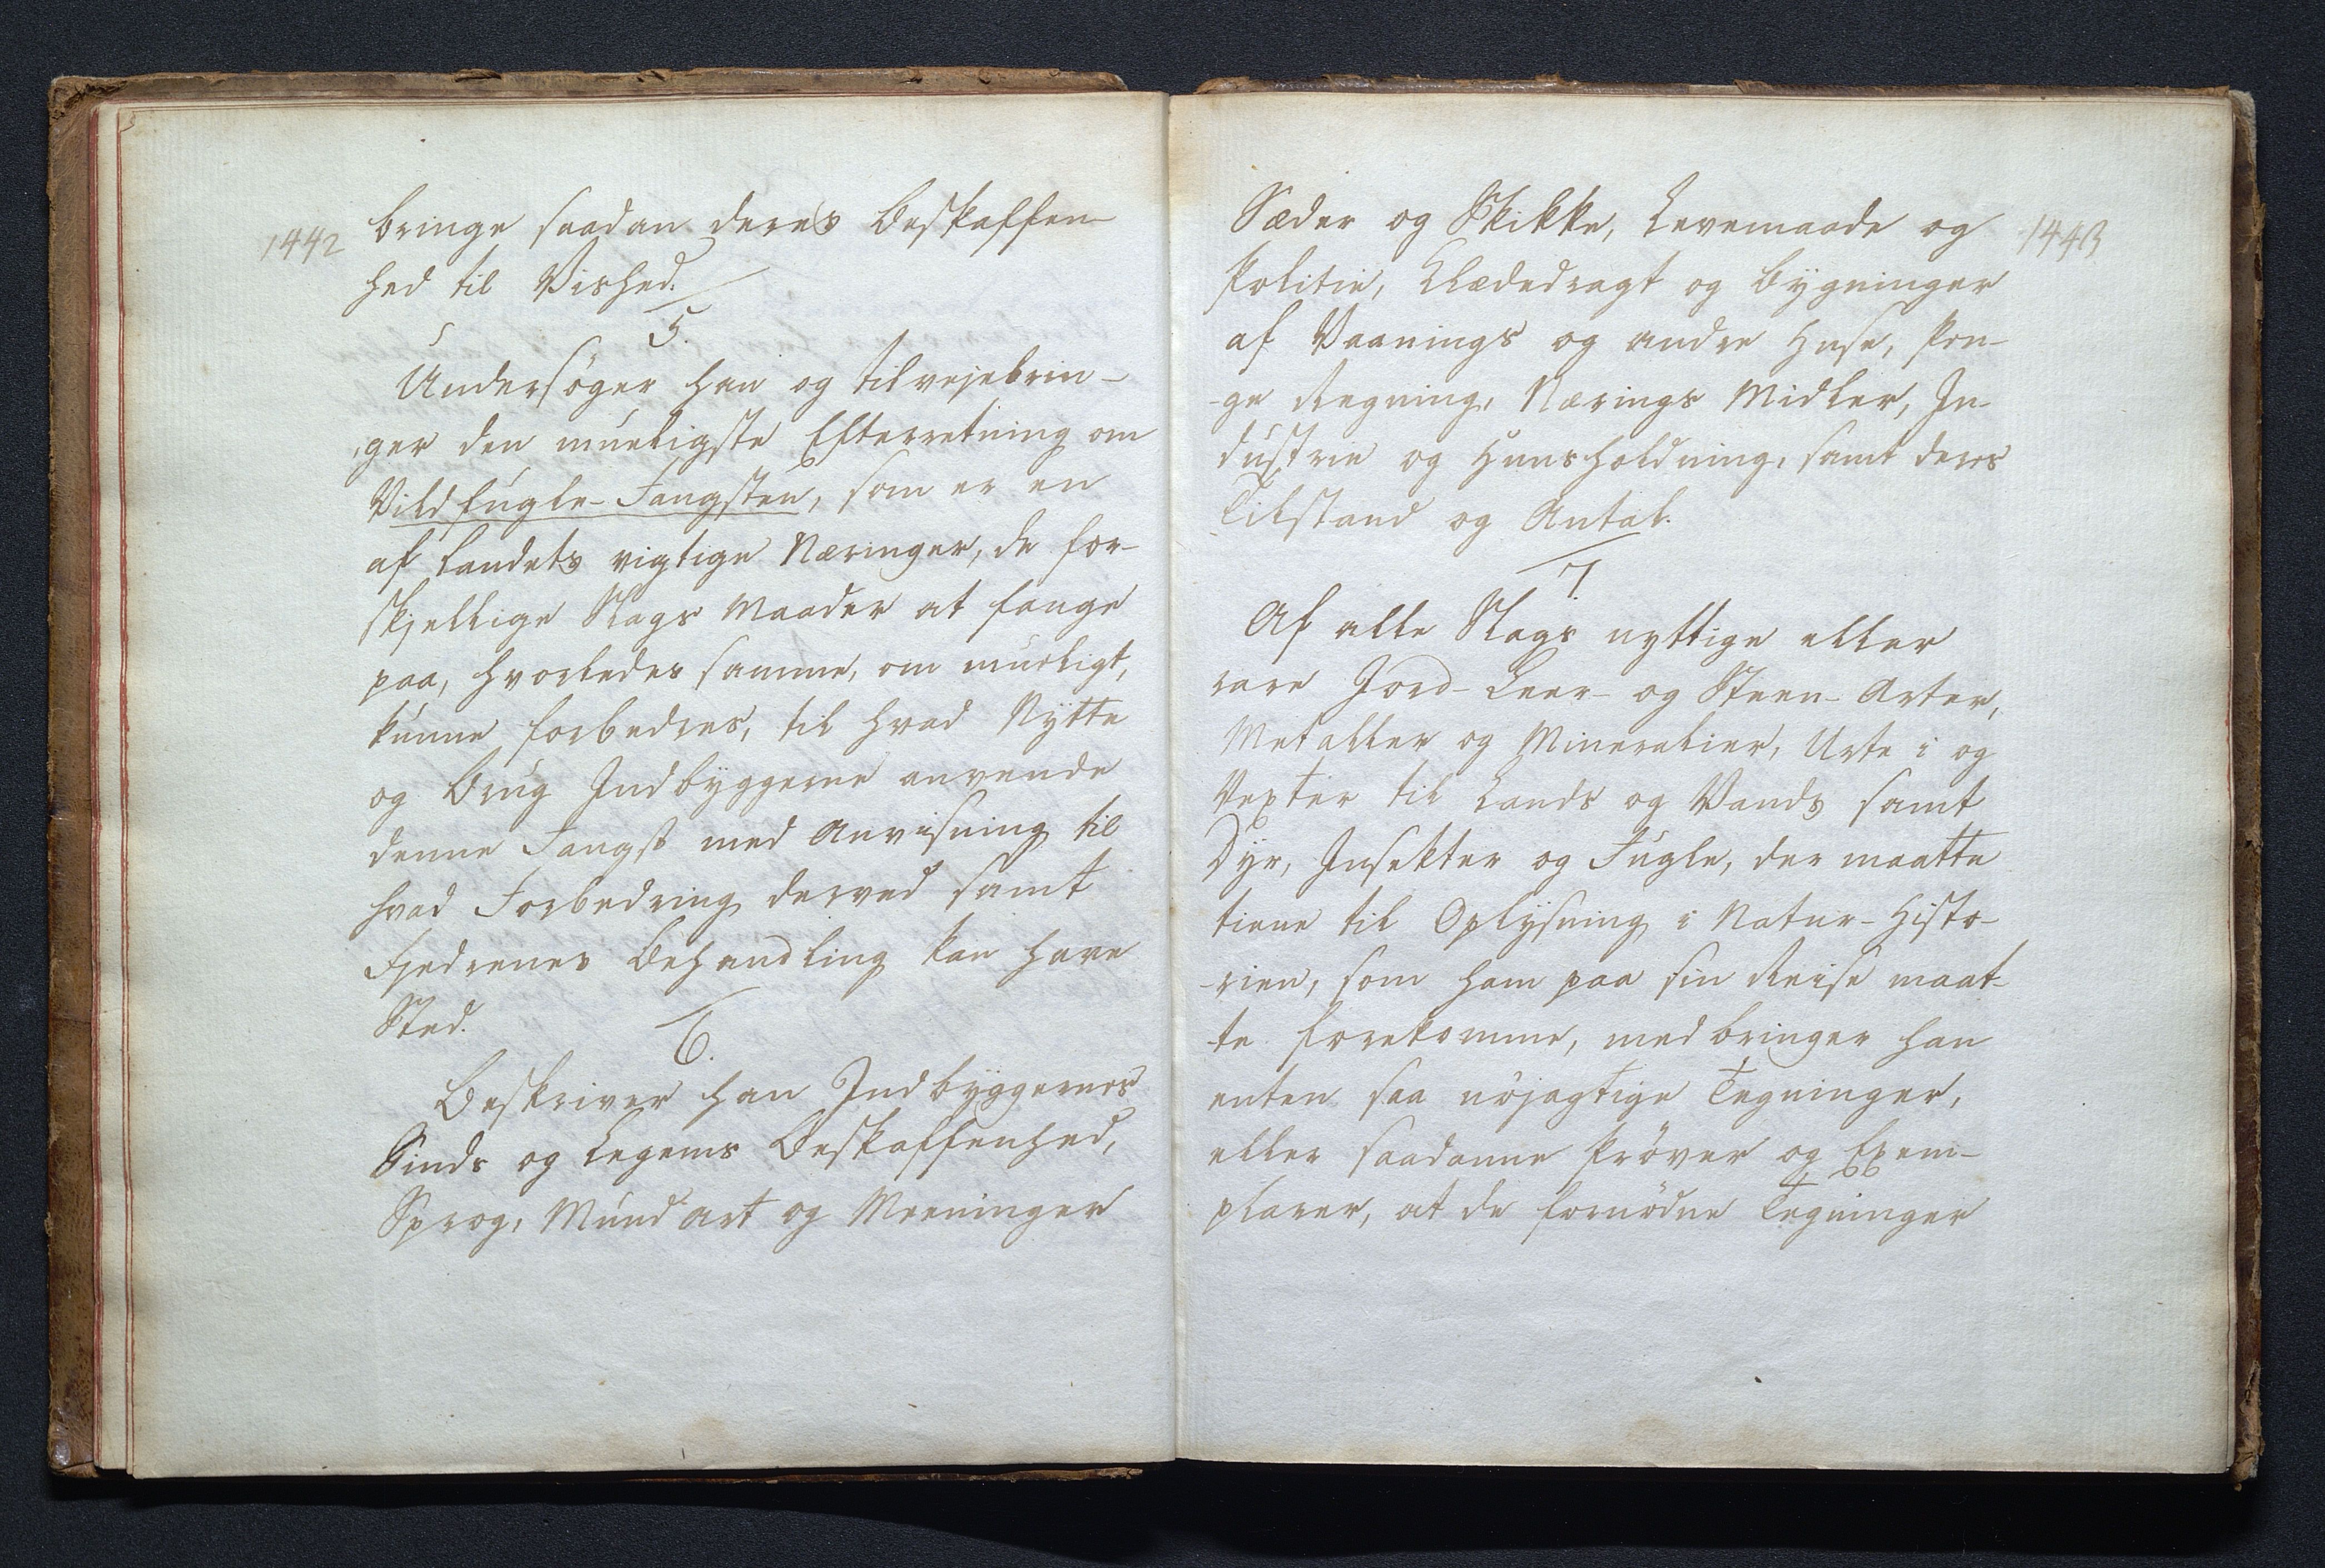 1442
bringe saadan deres Beskaffen-
hed til Vished.
5.
Undersøger han og tilvejebrin-
ger den mueligste Efterretning om
Vildfugle-Fangsten, som er en
af Landets vigtige Næringer, de for-
skjellige Slags Maader at fange
paa, hvorledes samme, om mueligt,
kunne forbedres, til hvad Nytte
og Brug Indbyggerne anvende
denne Fangst med Anvisning til
hvad Forbedring derved samt
Fjedrenes Behandling kan have
Sted.
6.
Beskriver han Indbyggernes
Sinds og Legems Beskaffenhed,
Sprog, Mund Art og Meeninger
1443
Sæder og Skikke, Levemaade og
Politie, Klædedragt og Bygninger
af Vaanings og andre Huse, Pen-
-ge Regning, Nærings Midler, In-
dustrie og Huusholdning, samt deres
Tilstand og Antal.
7.
Af alle Slags nyttige eller
rare Jord- Leer- og Steen-Arter,
Metaller og Mineralier, Urte i og
Vexter til Lands og Vands samt
Dyr, Insekter og Fugle, der maatte
tiene til Oplysning i Natur-Histo-
-rien, som ham paa sin Reise maat-
-te forekomme, medbringer han
enten saa nøjagtige Tegninger,
eller saadanne Prøver og Exem-
plarer, at de fornødne Tegninger